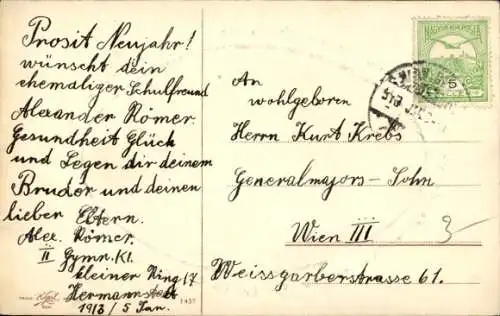 Prosit Neujahr!
wünscht dein
ehemaliger Schulfreund
Alexander Römer.
Gesundheit Glück
und Segen dir deinem
Bruder und deinen
lieber Eltern.
Alex. Römer.
II Gymn. Kl.
kleiner Ring 17
Hermannstadt
1913/5 Jan.
1437
An
wohlgeboren
Herrn Kurt Krebs
Generalmajors-Sohn
Wien III
Weissgärberstrasse 61.
3